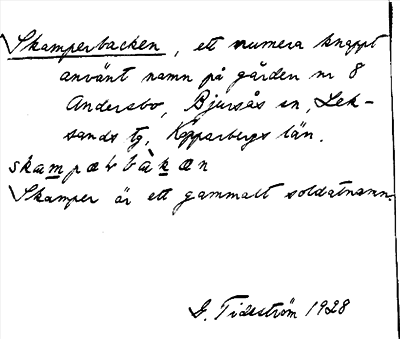 Skamperbacken, ett numera knappt
använt namn på gården nr 8
Andersbo, Bjursås sn, Lek-
sands tg, Kopparbergs län.
skampærbàkæn
Skamper är ett gammalt soldatnamn.
G. Tideström 1928